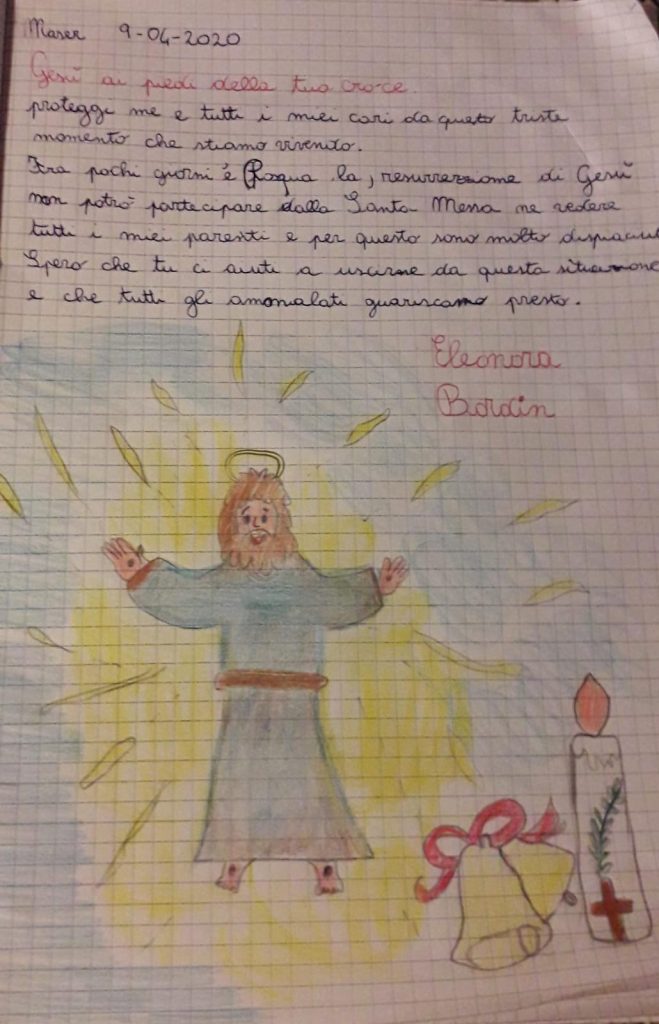 Maser 9-04-2020
Gesù ai piedi della tua croce.
proteggi me e tutti i miei cari da questo triste
momento che stiamo vivendo.
Fra pochi giorni è Pasqua la, resurrezione di Gesù
non potrò partecipare dalla Santa Messa ne vedere
tutti i miei parenti e per questo sono molto dispiaciut
Spero che tu ci aiuti a uscirne da questa situazione
e che tutti gli ammalati guariscano presto.
Eleonora
Bordin